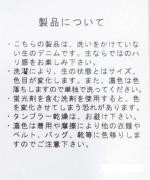 製品について
・こちらの製品は、洗いをかけていな
い生のデニムです。生ならではのハ
リ感をお楽しみ下さい。
・洗濯により、生の状態とはサイズ、
色目が変化します。また、濃色は色
落ちしますので単独で洗ってください。
蛍光剤を含む洗剤を使用すると、色
を変化させてしまう恐れがあります。
・タンブラー乾燥は、お避け下さい。
・濃色は着用や摩擦により他の衣類や
ベルト、バッグ、靴等に色移りしま
すのでご注意下さい。